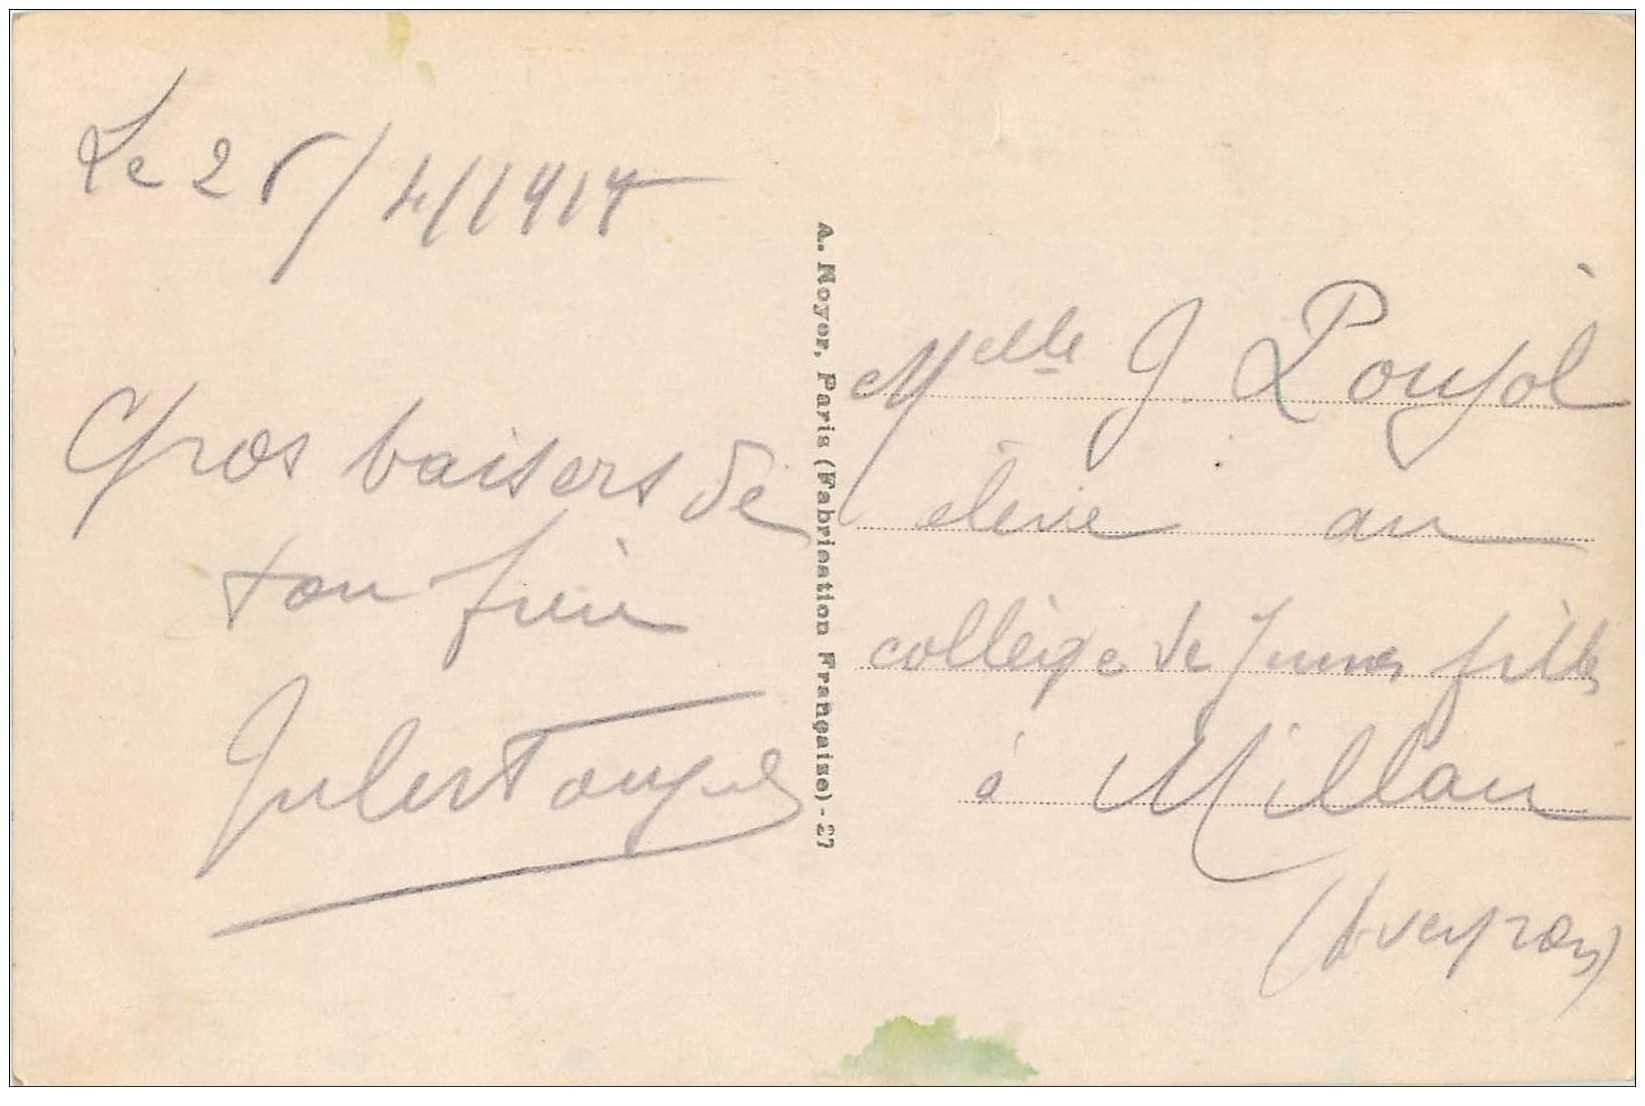 Le 25/4/1917
Gros baisers de
ton frère
Jules Poujol
A. Noyer, Paris (Fabrication Française) - 27
Melle J. Poujol
élève au
collège de Jeunes filles
à Millau
(Aveyron)